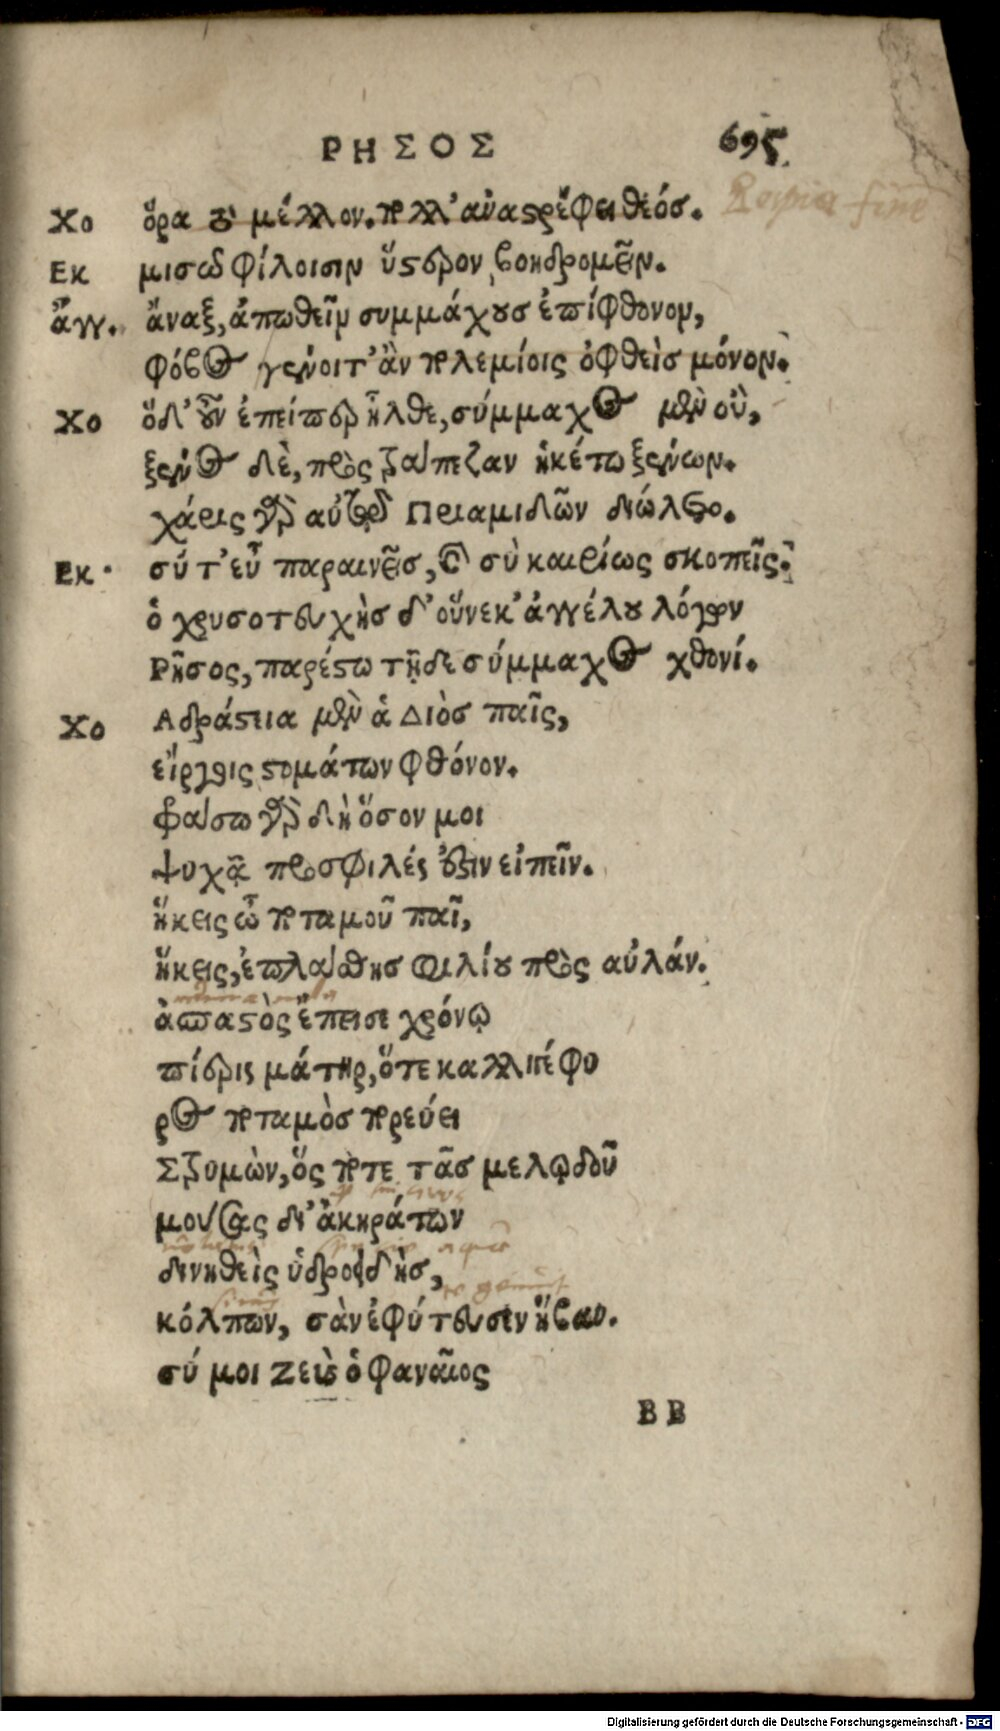 ΡΗΣΟΣ 695
Χο ὅρα τὸ μέλλον. πόλλ' ἀναστρέφει θεός.
Εκ μισῶ φίλοισιν ὕστερον βοηδρομεῖν.
ἄγγ. ἄναξ, ἀπωθεῖν συμμάχους ἐπίφθονον,
φόβος γένοιτ' ἂν πολεμίοις ὀφθεὶς μόνον.
Χο ὅδ' οὖν ἐπείπερ ἦλθε, σύμμαχος μὲν οὒ,
ξένος δὲ, πρὸς τράπεζαν ἡκέτω ξένων.
χάρις γὰρ αὐτῷ Πριαμιδῶν διώλετο.
Εκ σύ τ' εὖ παραινεῖς, καὶ σὺ καιρίως σκοπεῖς.
ὁ χρυσοτευχὴς δ' οὕνεκ' ἀγγέλου λόγων
Ρῆσος, παρέστω τῇδε σύμμαχος χθονί.
Χο Αδράστεια μὲν ἁ Διὸς παῖς,
εἴργοις στομάτων φθόνον.
φράσω γὰρ δὴ ὅσον μοι
ψυχᾷ προσφιλές ἐστιν εἰπεῖν.
ἥκεις ὦ ποταμοῦ παῖ,
ἥκεις, ἐπλάθης φιλίου πρὸς αὐλάν.
ἀσπαστὸς ἔπεισε χρόνῳ
πίερις μάτηρ, ὅτε καλλιγέφυ
ρος ποταμὸς πορεύει
Στρυμὼν, ὅς ποτε τᾶς μελῳδοῦ
μούσας δι' ἀκηράτων
δινηθεὶς ὑδροειδὴς,
κόλπων, σὰν ἐφύτευσεν ἥβαν.
σύ μοι Ζεὺς ὁ φαναῖος
ΒΒ
Digitalisierung gefördert durch die Deutsche Forschungsgemeinschaft - DFG